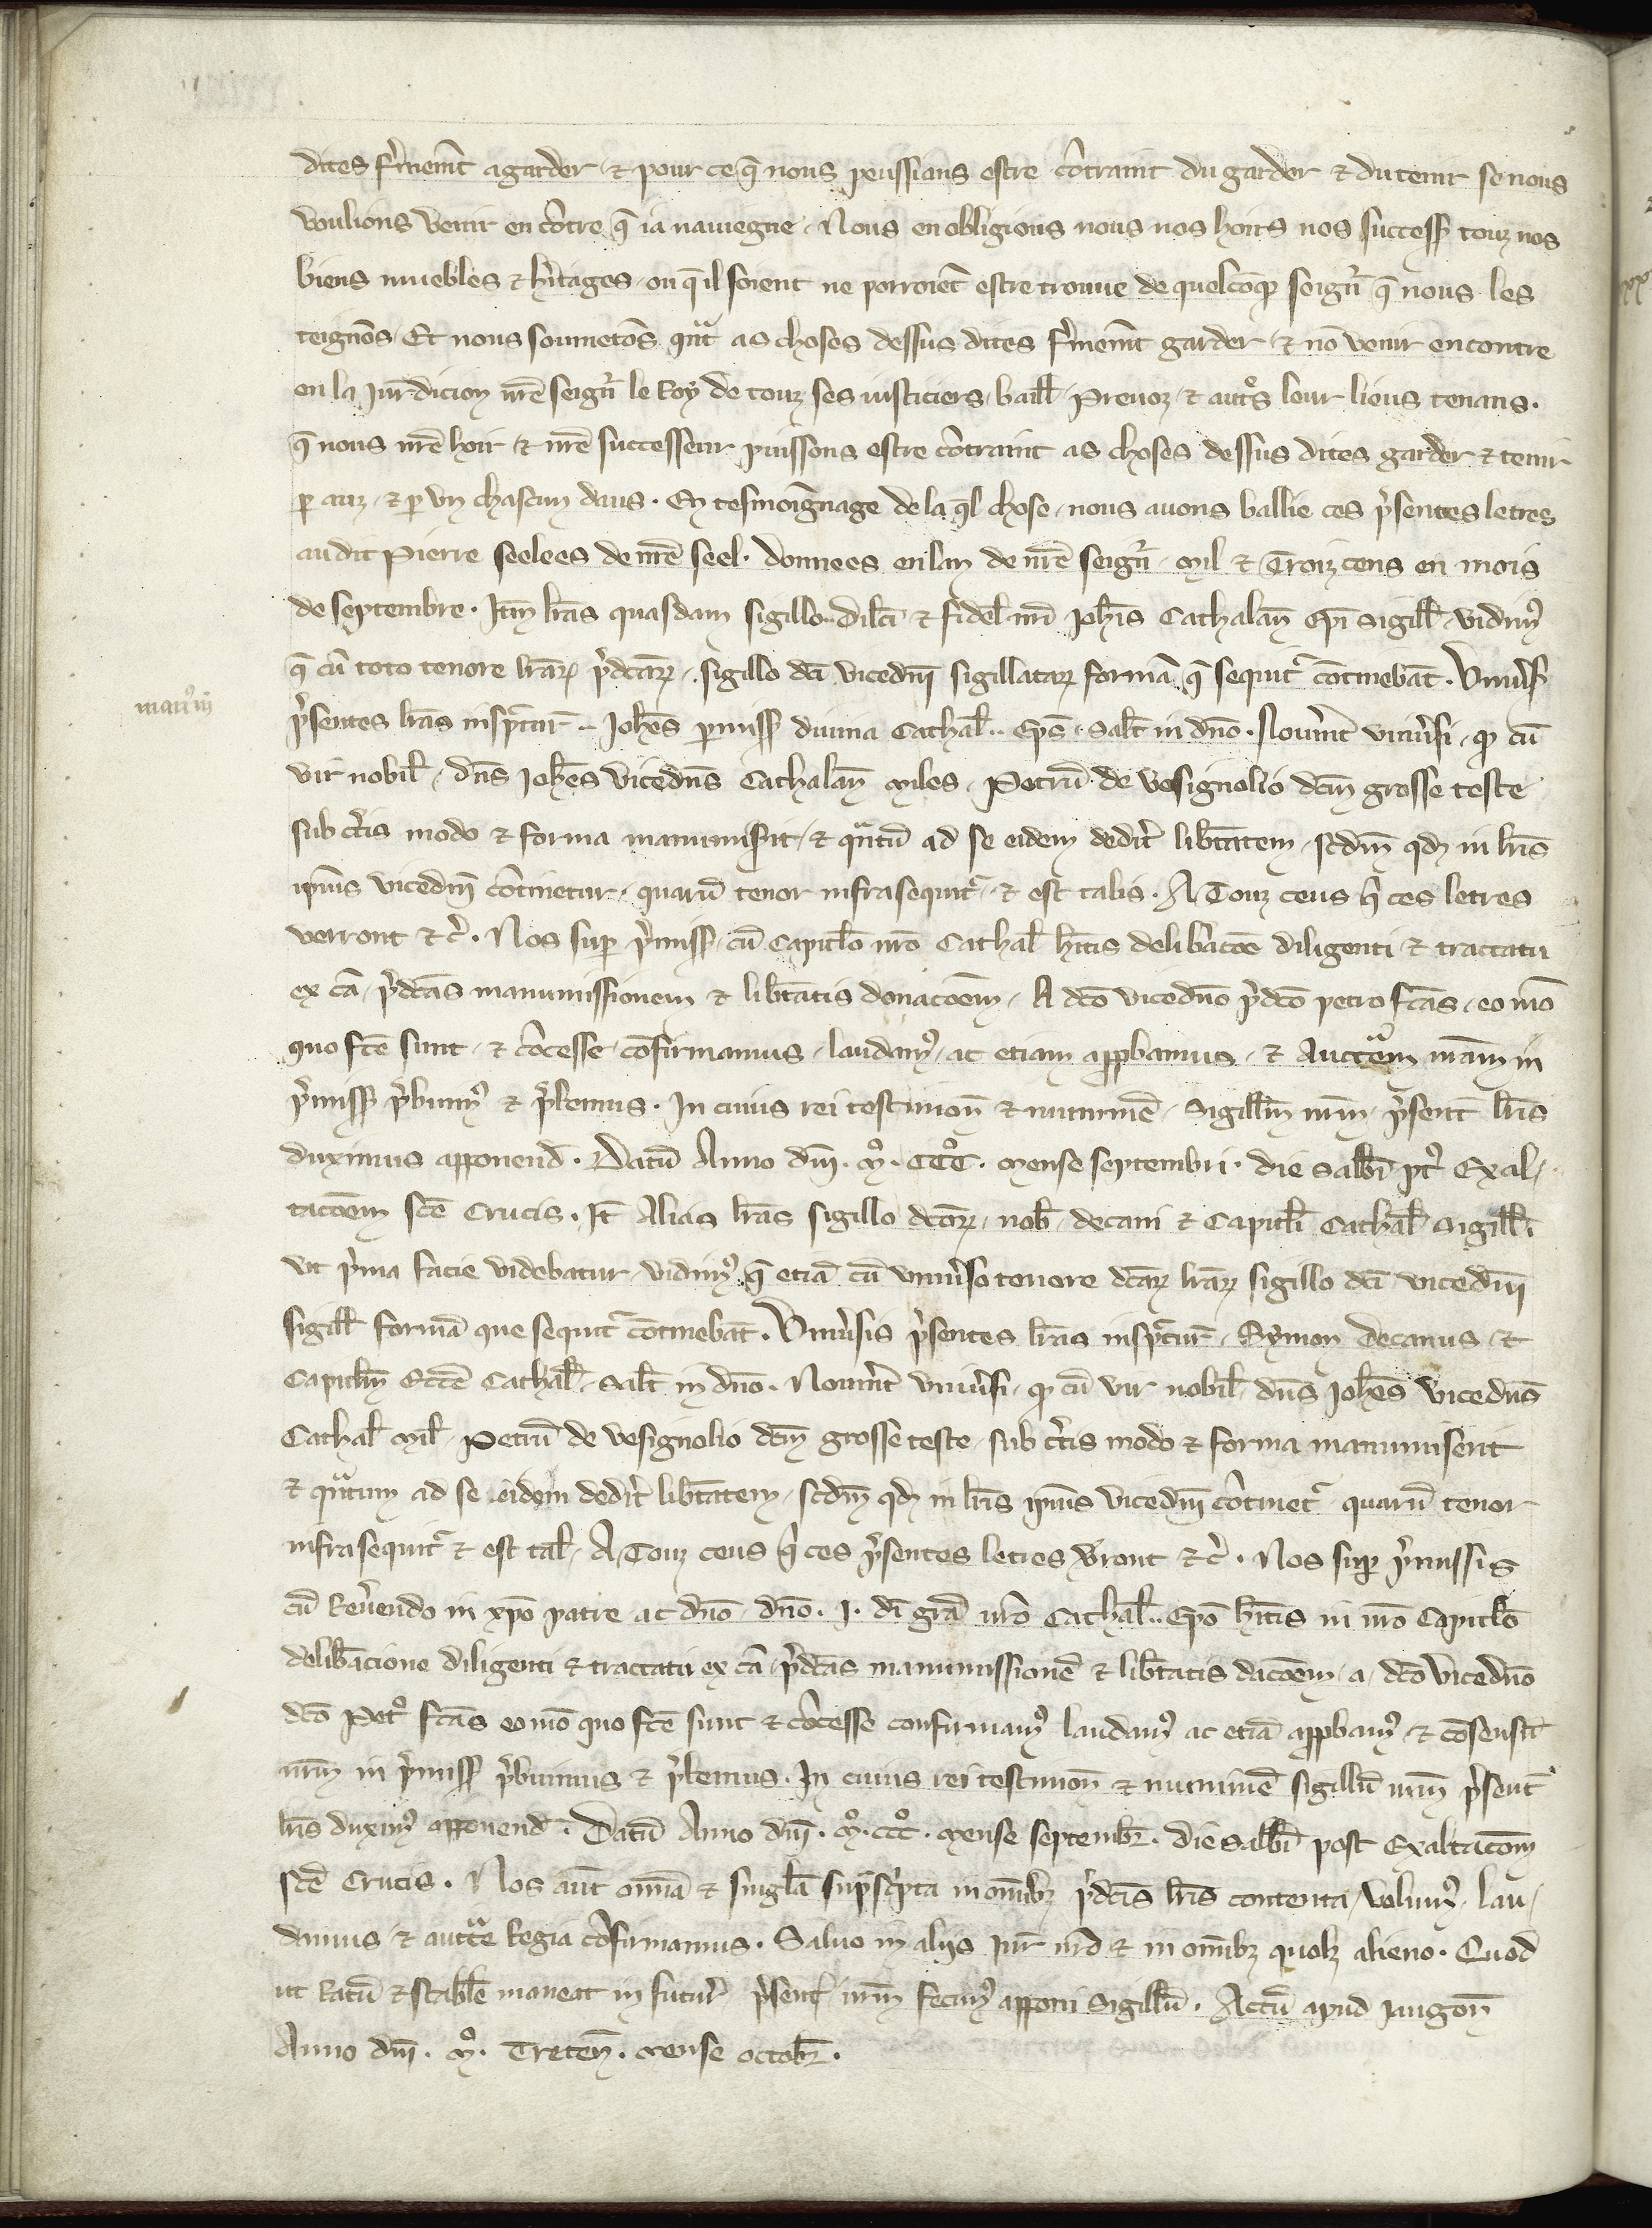 dites f̾mem̄t agarder / ⁊ pour ce q̄ nous peussians estre cōtraint du garder ⁊ du tenir se nous
voulions venir en cōtre q̄ ia nauiegne / Nous en obligions nous nos hoirs nos successˢ touz nos
biens muebles ⁊ h̾itages / ou q̄ il soient ne porroiēt estre trouue de quelcōq̨ seign̄r q̄ nous les
teignōs / Et nous soumetōs qᵃt as choses dessus dites f̾mem̄t garder / ⁊ nō venir encontre
en la Iur̄dicion nr̄e seign̄r le Roy de touz ses iusticiers / baill̄ / Preuoz / ⁊ autᵒs leur lieus tenans .
q̄ nous nr̄e hoir ⁊ nr̄e successeur puissons estre cōtraint as choses dessus dites garder ⁊ tenir
ꝑ auz / ⁊ ꝑ vn chascun daus . En tesmoignage de la q̄l chose / nous auons ballie ces p̾sentes letres
audit Pierre seelees de nr̄e seel . donnees en lan de nr̄e seign̄r / Mil ⁊ Troiz cens en mois
de septembre . Itm̄ lr̄as quasdam sigillo .. dilc̄i ⁊ fidel̄ nr̄i Joh̄is Cathalan̄ Ep̄i sigill̄ / vidimꝰ
q̄ cū toto tenore lr̄aꝝ p̾dc̄aꝝ / sigillo dc̄i vicedn̄i sigillataꝝ formā q̄ sequit᷑ cōtinebāt . Vniu̾sˢ
p̾sentes lr̄as insp̄ctur̄ .. Joh̄es ꝑmissˢ diuina Cathal̄ .. Ep̄s . Salt̄ in dn̄o . Nouer̄it vniu̾si / ꝙ cū
vir nobil̄ / dn̄s Joh̄es vicedn̄s Cathalan̄ Miles / Petrū de vesignolio dc̄m grosse teste
sub c̾tis modo ⁊ forma manumiserit / ⁊ qᵃtū ad se eidem dedit̾ lib̄tatem / scdm̄ qd̄ in lr̄is
ip̄ius vicedn̄i cōtinetur / quarū tenor infrasequit᷑ / ⁊ est talis . A Touz ceus q̄ ces letres
verront ⁊c̾ . Nos suꝑ p̾missˢ cū Capitl̄o nr̄o Cathal̄ hītis delib̾acōe diligenti ⁊ tractatu
ex cā / p̾dc̄as manumissionem ⁊ lib̄tatis donacōem / A dc̄o vicedn̄o p̾dc̄o petro fc̄as / eo mō
quo fc̄e sunt / ⁊ cōcesse / cōfirmamus / laudamꝰ / ac etiam appꝓbamus / ⁊ Auctᵃtem nr̄am in
p̾missˢ p̾buimꝰ ⁊ p̾bemus . In cuius rei testimon̄ ⁊ munimē / Sigill̄m nr̄m / p̾sent̄ lr̄is
duximus apponend̄ . Datū Anno dn̄i . Mᵒ . CCCᵒ . Mense septembri . die Sabbī pt̾ Exal/
tacōem sc̄e Crucis . Itē Alias lr̄as sigillo dc̄oꝝ / nob̄ / decani ⁊ Capitl̄i Cathal̄ sigill̄
vt p̾ma facie videbatur / vidimꝰ q̄ etiā cū vniu̾so tenore dc̄aꝝ lr̄aꝝ sigillo dc̄i vicedn̄i
sigill̄ formā que sequit᷑ cōtinebāt . Vniu̾sis p̾sentes lr̄as insp̄ctur̄ / Symon Decanus / ⁊
Capitl̄m Ecc̄e Cathal̄ / Salt̄ in dn̄o . Nouer̄it vniu̾si / ꝙ cū vir nobil̄ / dn̄s Joh̄es vicedn̄s
Cathal̄ Mil̄ / Petrū de vesignolio dc̄m grosse teste / sub c̾tis modo ⁊ forma manumiserit
⁊ qᵃtum ad se eidem dedit̾ lib̄tatem / scdm̄ qd̄ in lr̄is ip̄ius vicedn̄i cōtinet᷑ quarū tenor
infrasequit᷑ ⁊ est tal̄ / A Touz ceus q̄ ces p̾sentes letres v̾ront ⁊c̾ . Nos suꝑ p̾missis
cū Reu̾endo in xp̄o patre ac dn̄o / dn̄o . J . dī grā nr̄o Cathal̄ .. Ep̄o hītis in nr̄o Capitl̄o
delib̄acione diligenti ⁊ tractatu ex cā / p̾dc̄as manumissionē ⁊ lib̄tatis dacōem / a / dc̄o vicedn̄o
dc̄o Petᵒ fc̄as eo mō quo fc̄e sunt ⁊ cōcesse confirmamꝰ laudamꝰ ac etiā appꝓbamꝰ / ⁊ cōsensū
nr̄m in p̾missˢ p̾buimus ⁊ p̾bemus . In cuius rei testimon̄ ⁊ munimē sigillū nr̄m p̾sent᷑
lr̄is duximꝰ apponend̄ . Datū Anno dn̄i . Mᵒ . CCCᵒ . Mense septembr̄ . die Sabbī post Exaltacōem
sc̄e Crucis . Nos aūt om̄ia ⁊ singl̄a sup̄sc̾pta in om̄ibꝫ p̾dc̄is lr̄is contenta / volumꝰ / lau/
damus / ⁊ auctᵃte Regia cōfirmamus . Saluo in aliis Iur̄ nr̄o ⁊ in om̄ibꝫ quolꝫ alieno . Quod
ut Ratū ⁊ stabl̄e maneat in futur̄ p̾sent̄ nr̄m fecimꝰ apponi Sigillū . Actū apud Jangon̄
Anno dn̄i . Mᵒ . Trecen̄ . Mense octobr̄ .